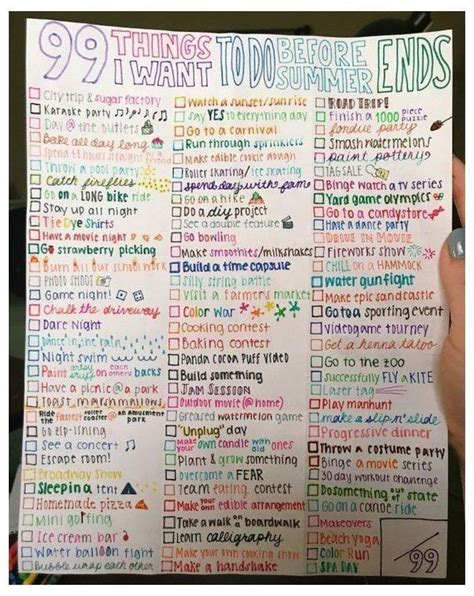 99 THINGS I WANT TO DO BEFORE SUMMER ENDS
City trip & sugar factory
Karaoke party
Day @ the outlets
Bake all day long
Spend 48 hours straight
Throw a pool party
Catch fireflies
Go on a LONG bike ride
Stay up all night
Tie Dye Shirts
Have a movie night
Go strawberry picking
Burn all our school work
PHOTO SHOOT
Game night!
Chalk the driveway
Dare Night
Dance in the rain
Night swim
Paint artsy stuff on each others backs
Have a picnic @ a park
Toast marshmallows
Ride the fastest roller coaster @ an amusement park
Go zip-lining
See a concert
Escape room!
Broadway Show
Sleep in a tent
Homemade pizza
Mini golfing
Ice cream bar
Water balloon fight
Bubble wrap each other
Watch a sunset/sunrise
Say YES to everything day
Go to a carnival
Run through sprinklers
Make edible cookie dough
Roller skating/ice skating
Spend day with fam
Go on a hike
Do a diy project
See a double feature
Go bowling
Make smoothies/milkshakes
Build a time capsule
Silly string battle
Visit a farmers market
Color War
Cooking contest
Baking contest
Panda Cocoa Puff Video
Build something
Jam Session
Outdoor movie (@ home)
Greased watermelon game
"Unplug" day
Make your own candle with old ones
Plant & grow something
Overcome a FEAR
Team eating contest
Make your own edible arrangement
Take a walk on a boardwalk
Learn calligraphy
Make your own cooking show
Make a handshake
ROAD TRIP!
Finish a 1000 piece puzzle
Fondue party
Smash watermelons
Paint pottery
TAG SALE
Binge watch a tv series
Yard game olympics
Go to a candy store
Have a dance party
Drive in Movie
Fireworks show
CHILL on a HAMMOCK
Water gun fight
Make epic sandcastle
Go to a sporting event
Videogame tourney
Get a henna tatoo
Go to the zoo
Successfully FLY a KITE
Laser tag
Play manhunt
Make a slip n' slide
Progressive dinner
Throw a costume party
Binge a movie series
30 day workout challenge
Do something out of state
Go on a canoe ride
Makeovers
Beach yoga
Color Run
SPA DAY
/99